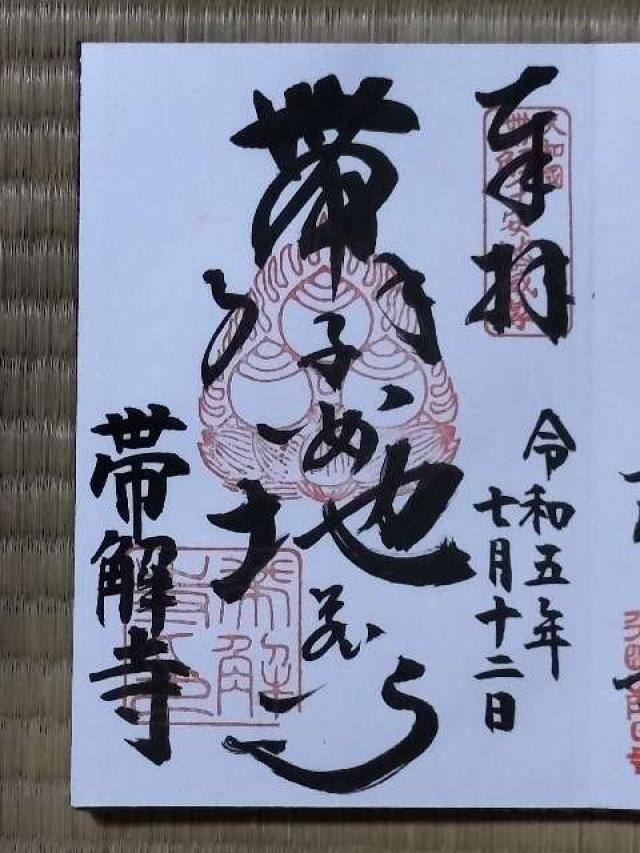 奉拝
大和國
帯解子安地蔵尊
令和五年
七月十二日
帯解子安地蔵
帯解寺